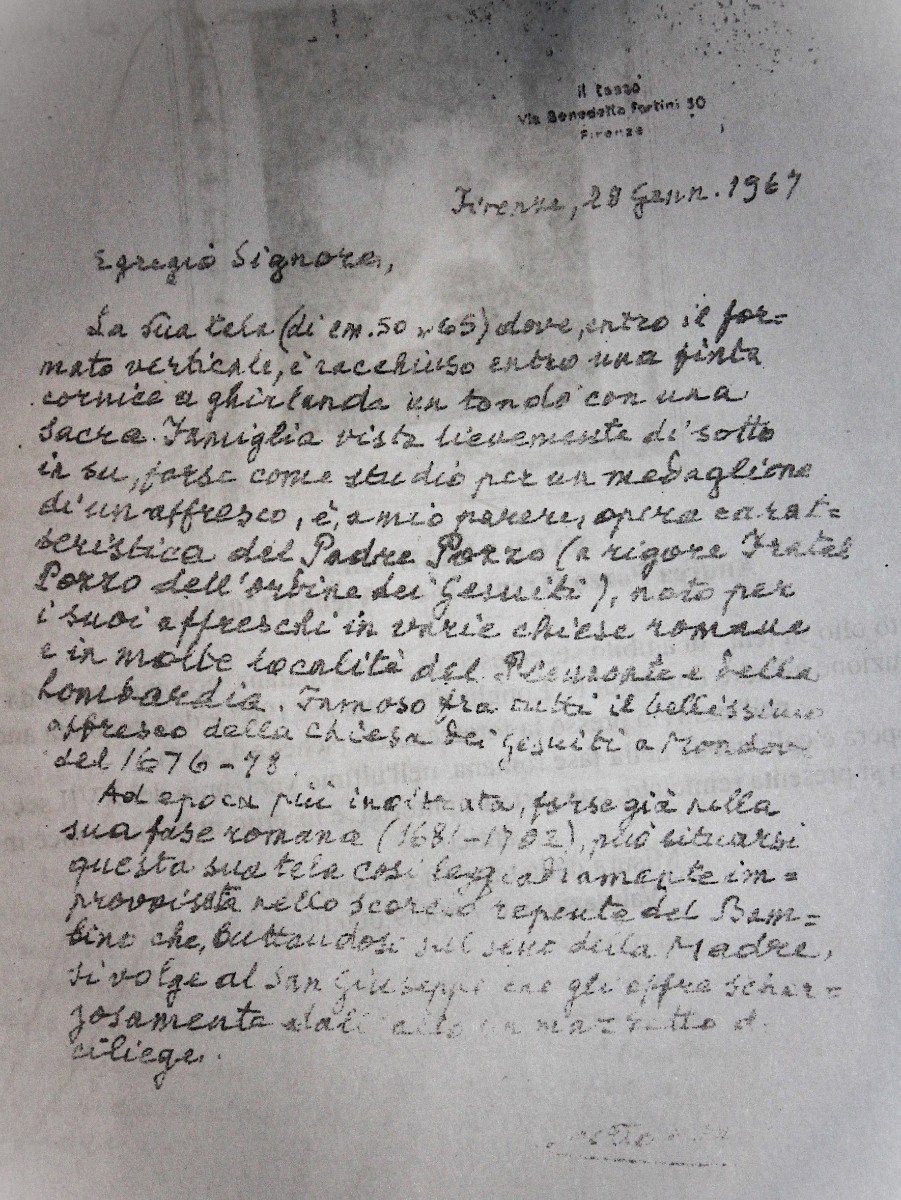 il tasso
Via Benedetto Fortini 30
Firenze
Firenze, 28 Genn. 1967
Egregio Signore,
La Sua tela (di cm. 50 x 65) dove, entro il for=
mato verticale, è racchiuso entro una finta
cornice a ghirlanda un tondo con una
Sacra Famiglia vista lievemente di sotto
in su, forse come studio per un medaglione
di un affresco, è, a mio parere, opera carat=
teristica del Padre Pozzo (a rigore Fratel
Pozzo dell'ordine dei Gesuiti), noto per
i suoi affreschi in varie chiese romane
e in molte località del Piemonte e della
Lombardia. Famoso fra tutti il bellissimo
affresco della Chiesa dei Gesuiti a Mondovì
del 1676-78.
Ad epoca più inoltrata, forse già nella
sua fase romana (1681-1702), può situarsi
questa sua tela così leggiadramente im=
provvisata nello scorcio repente del Bam=
bino che, buttandosi sul seno della Madre,
si volge al San Giuseppe che gli offre scher=
zosamente dall'alto un mazzetto di
ciliege.